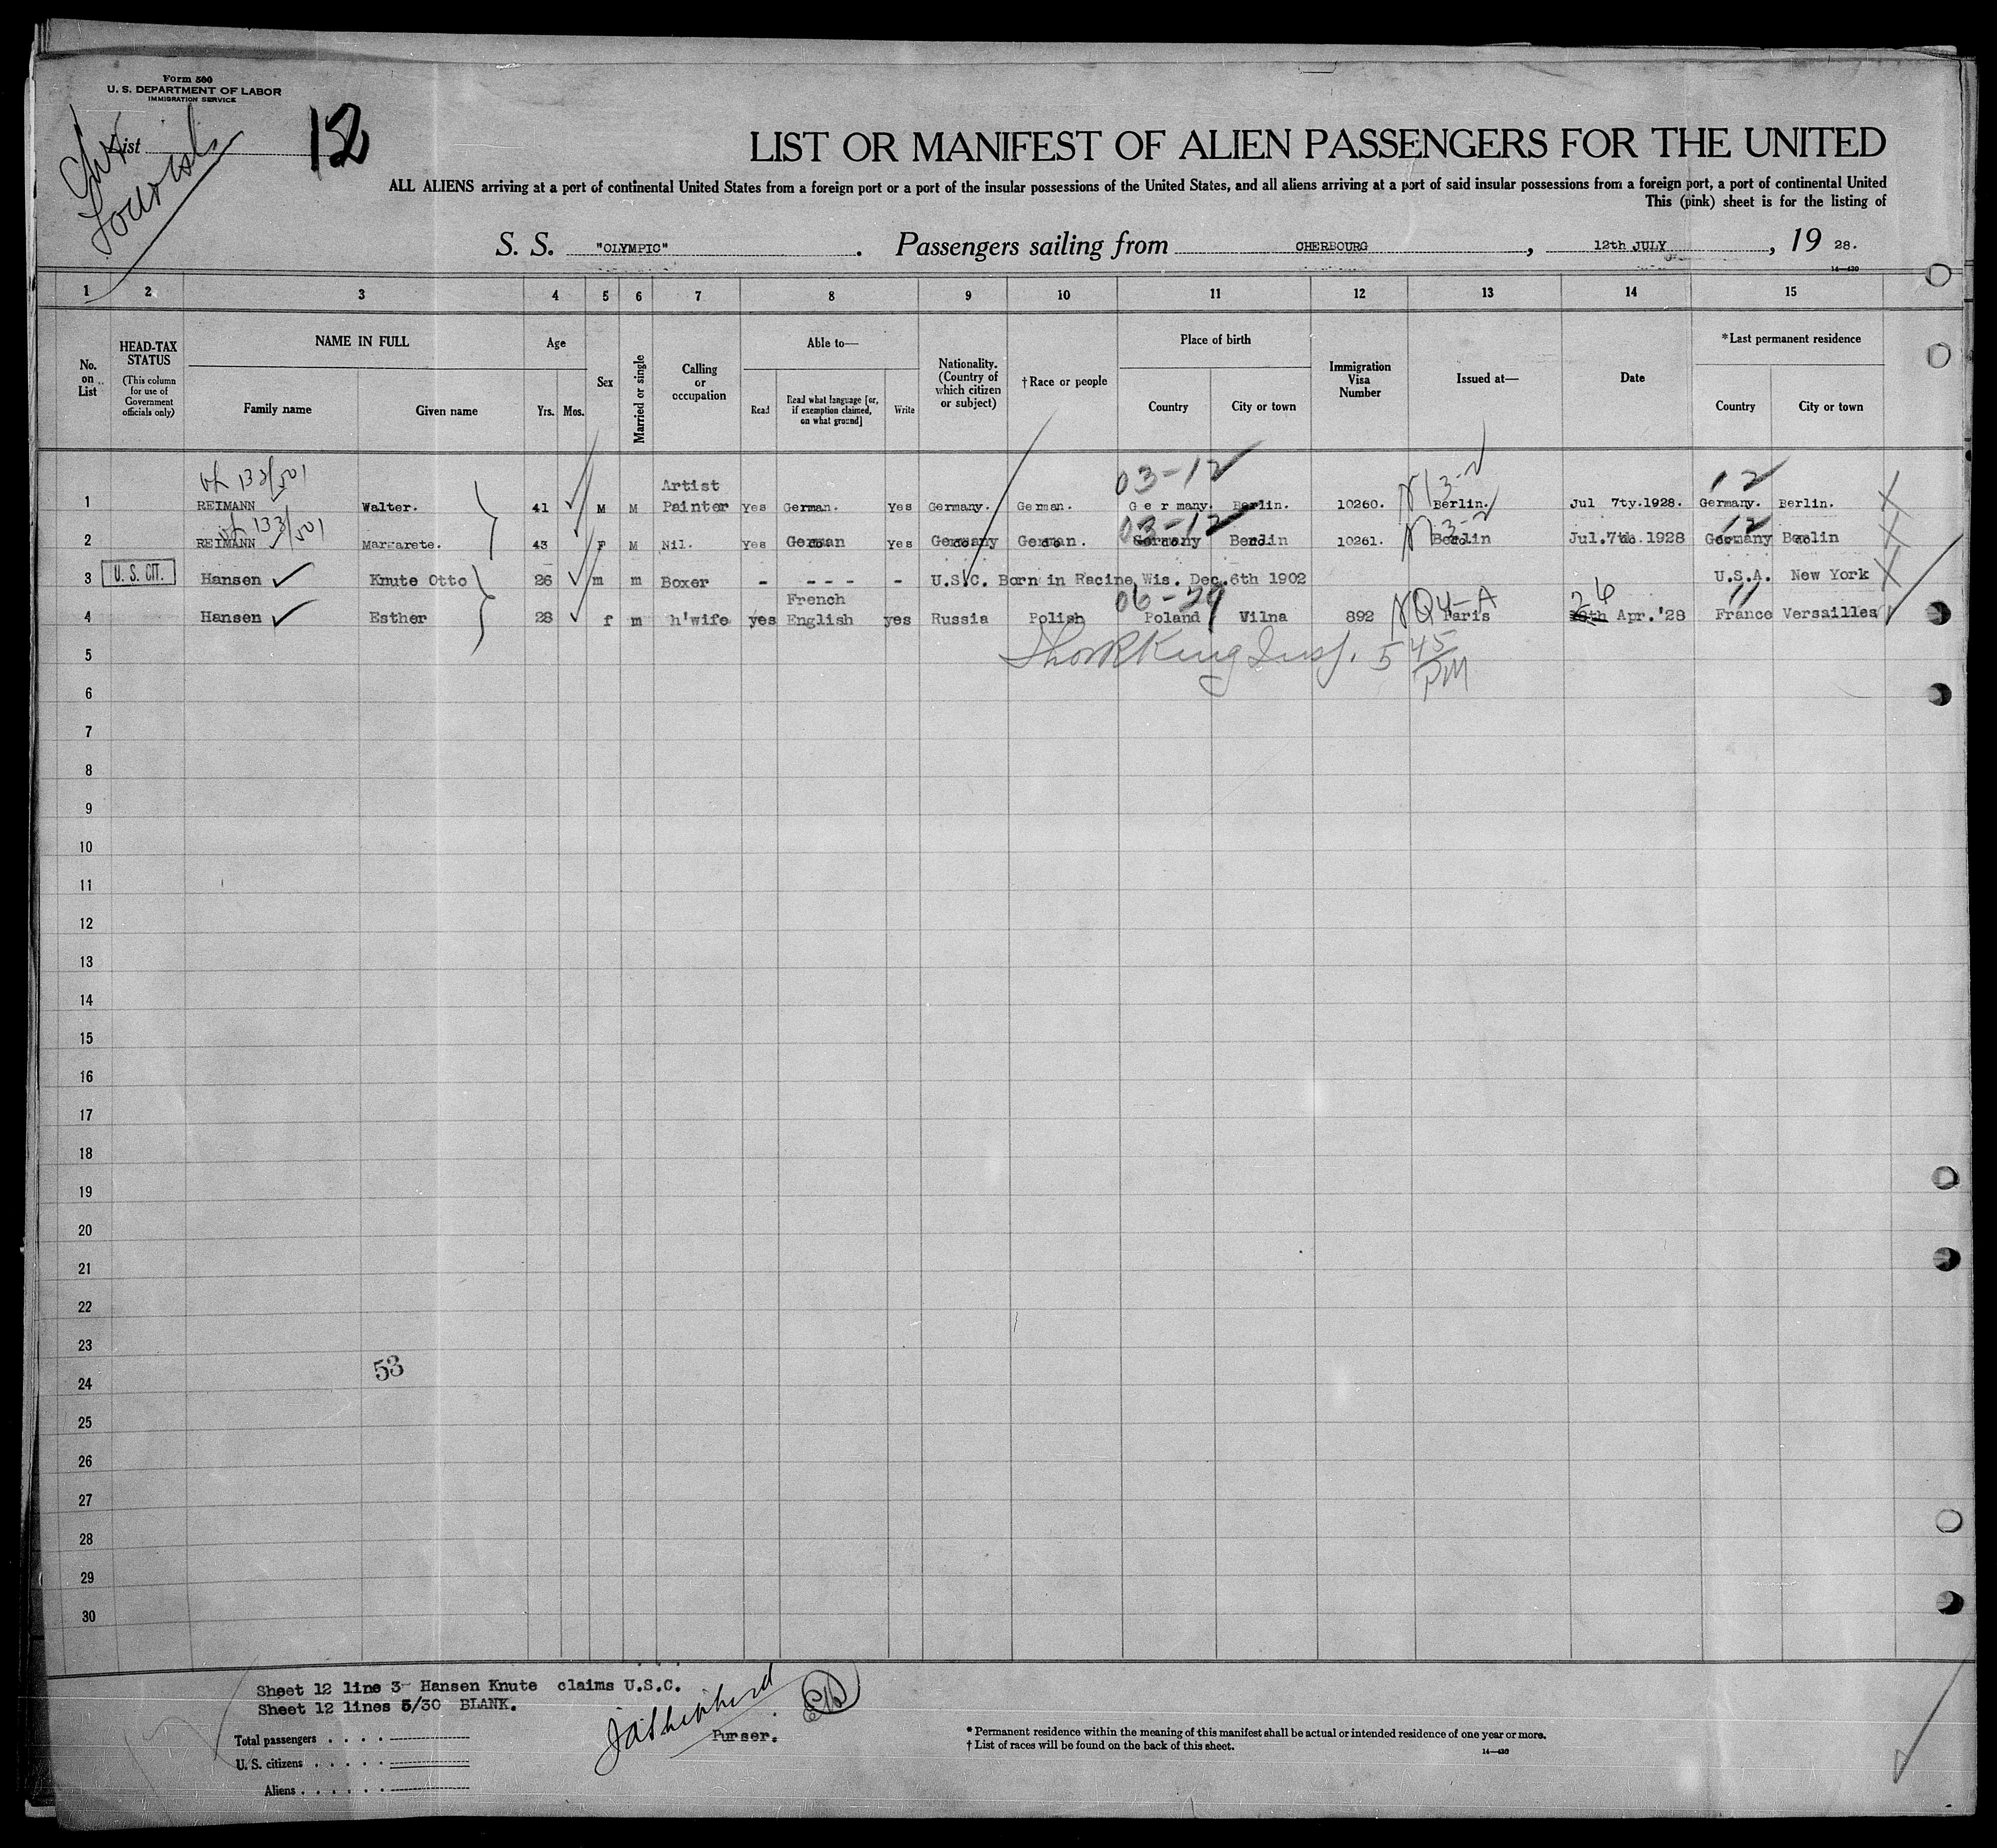 Form 500
U. S. DEPARTMENT OF LABOR
IMMIGRATION SERVICE
List
12
LIST OR MANIFEST OF ALIEN PASSENGERS FOR THE UNITED
ALL ALIENS arriving at a port of continental United States from a foreign port or a port of the insular possessions of the United States, and all aliens arriving at a port of said insular possessions from a foreign port, a port of continental United
This (pink) sheet is for the listing of
S. S. "OLYMPIC". Passengers sailing from CHERBOURG, 12th JULY, 19 28.
14—430
1 2 3 4 5 6 7 8 9 10 11 12 13 14 15
No. on List
HEAD-TAX STATUS (This column for use of Government officials only)
NAME IN FULL
Family name Given name
Age
Yrs. Mos.
Sex
Married or single
Calling or occupation
Able to—
Read Read what language [or, if exemption claimed, on what ground] Write
Nationality. (Country of which citizen or subject)
†Race or people
Place of birth
Country City or town
Immigration Visa Number
Issued at—
Date
*Last permanent residence
Country City or town
133/501 03-12 13-2 12
1 REIMANN Walter. 41 M M Artist Painter Yes German. Yes Germany. German. Germany. Berlin. 10260. Berlin. Jul 7ty.1928. Germany. Berlin.
133/501 03-12 13-2 12
2 REIMANN Margarete. 43 F M Nil. Yes German Yes Germany German. Germany Berlin 10261. Berlin Jul.7th.1928 Germany Berlin
3 U. S. CIT. Hansen Knute Otto 26 m m Boxer - - - - - U.S.C. Born in Racine, Wis. Dec.6th 1902 U.S.A. New York
06-29 NQ4-A 26 11
4 Hansen Esther 28 f m h'wife yes French English yes Russia Polish Poland Wilna 892 Paris Apr.'28 France Versailles
5 Insp. 5 45 PM
6
7
8
9
10
11
12
13
14
15
16
17
18
19
20
21
22
23
53
24
25
26
27
28
29
30
Sheet 12 line 3- Hansen Knute claims U.S.C.
Sheet 12 lines 5/30 BLANK.
Total passengers . . . .
U. S. citizens . . . . .
Aliens . . . . . .
Purser.
* Permanent residence within the meaning of this manifest shall be actual or intended residence of one year or more.
† List of races will be found on the back of this sheet.
14—430